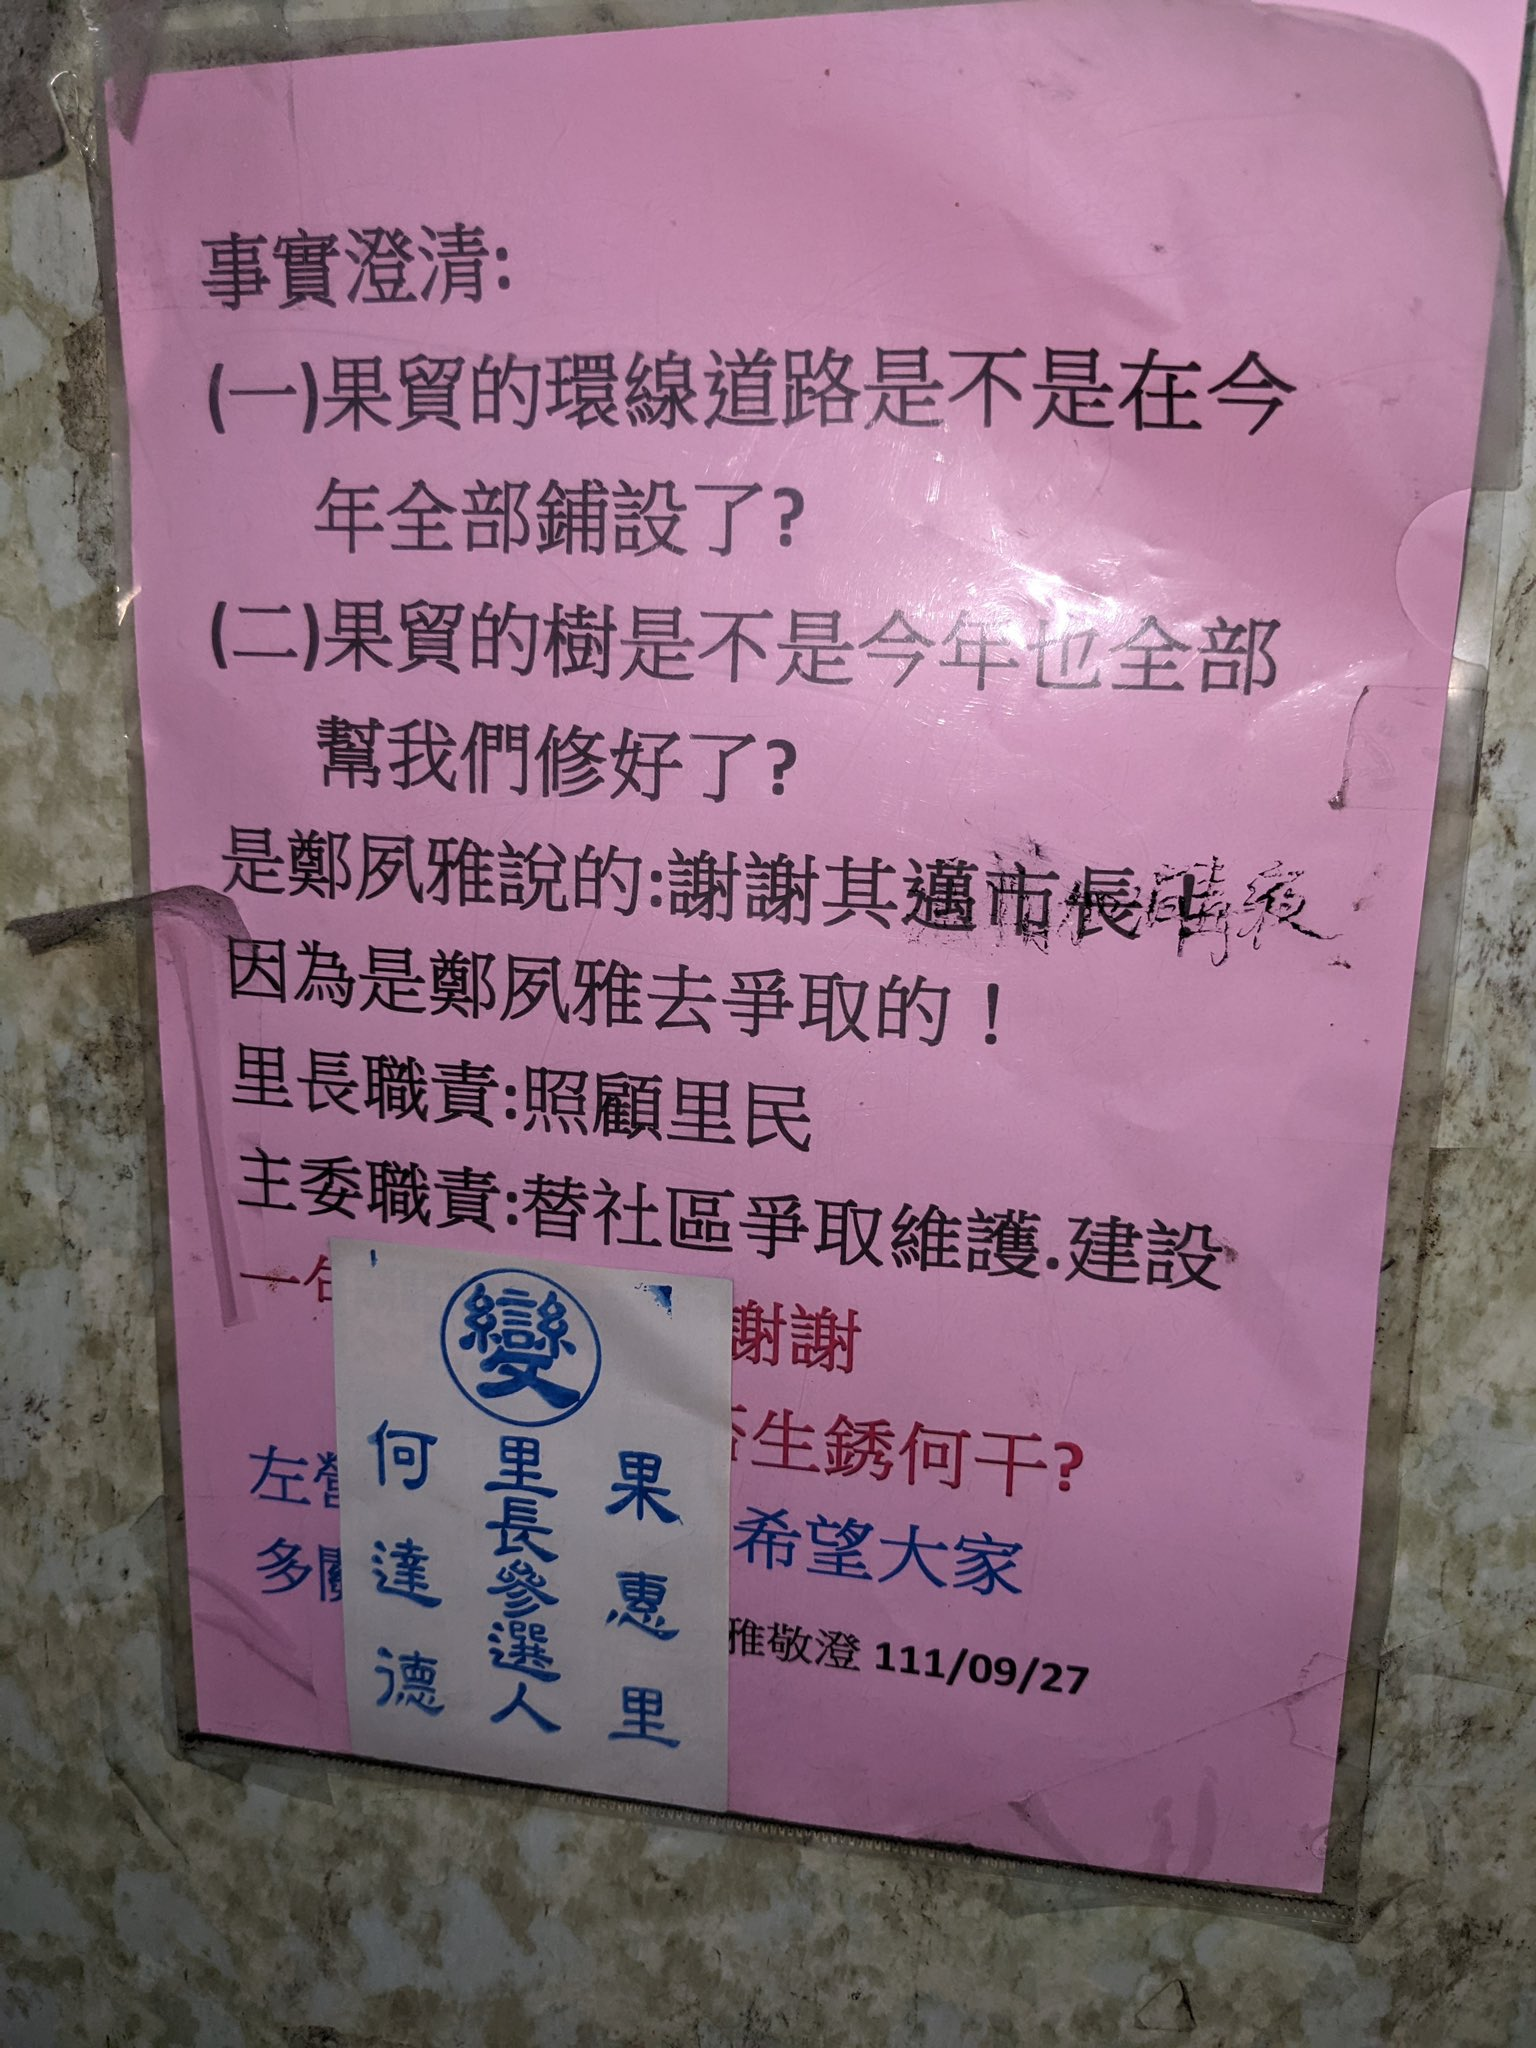 事實澄清:
(一)果貿的環線道路是不是在今
年全部鋪設了?
(二)果貿的樹是不是今年也全部
幫我們修好了?
是鄭夙雅說的:謝謝其邁市長!
因為是鄭夙雅去爭取的！
里長職責:照顧里民
主委職責:替社區爭取維護.建設
一 謝謝
生銹何干?
左營 希望大家
多
雅敬澄 111/09/27
變
果惠里
里長參選人
何達德